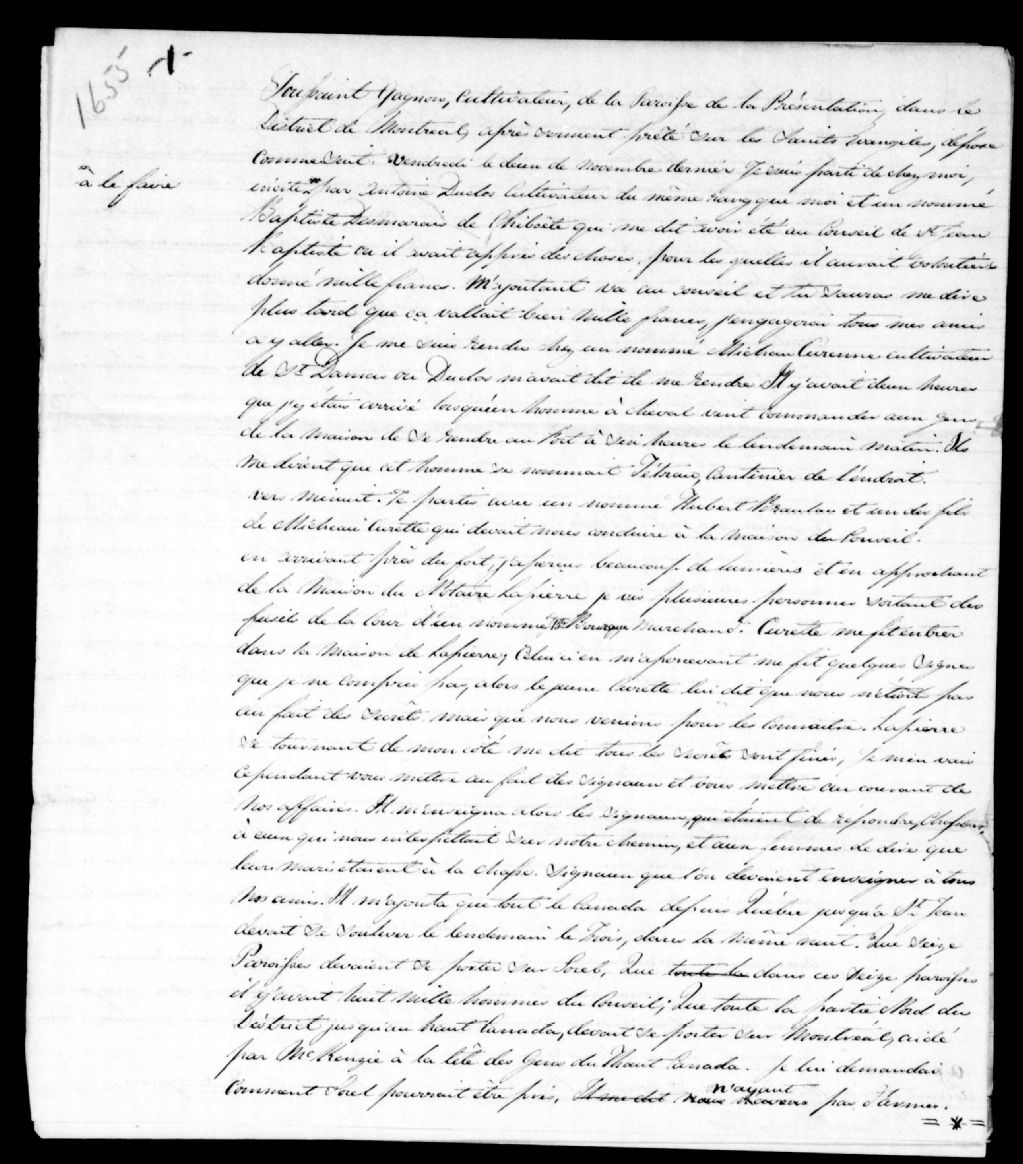 1655 -1-
Toussaint Gagnon, Cultivateur, de la Paroisse de la Présentation, dans le
District de Montreal, après serment prêté sur les Saints Evangiles, dépose
Comme suit. Vendredi le deux de novembre dernier Je suis parti de chez moi,
à le faire
incité par Antoine Duclos Cultivateur du même rang que moi et un nommé
Baptiste Desmarais de Chiboëte qui me dit avoir été au Conseil de St Jean
Baptiste où il avait appris des choses, pour les quelles il aurait volontiers
donné mille francs. M'ajoutant va au conseil et tu sauras me dire
plus tard que ça vallait bien mille francs, j'engagerai tous mes amis
a y aller. Je me suis rendu chez un nommé Micheau Curenne cultivateur
de St Damas ou Duclos m'avait dit de me rendre Il y'avait deux heures
que j'y etais arrivé lorsqu'un homme à cheval vint commander aux gens
de la maison de se rendre au Fort à six heures le lendemain matin. Ils
me dirent que cet homme se nommait Tétrau, Cantinier de l'endroit.
vers minuit. Je partis avec un nommé Hubert Beaulac et un des fils
de Micheau Curette qui devait nous conduire à la maison du Conseil.
en arrivant près du fort, j'apperçus beaucoup de lumières et en approchant
de la Maison du Notaire Lapierre je vis plusieures personnes sortant des
fusils de la Cour d'un nommé Bte Bourque Marchand. Curette me fit entrer
dans la Maison de Lapierre, Celui ci en m'apercevant me fit quelques signes
que je ne compris pas, alors le jeune Curette lui dit que nous n'étions pas
au fait des secrêts mais que nous venions pour les Connaitre. Lapierre
se tournant de mon côté me dit tous les secrêts sont finis, Je m'en vais
cependant vous mettre au fait des signaux et vous mettre au courant de
nos affaires. Il m'enseigna alors les signaux, qui étaient de répondre, Chasseur,
à ceux qui nous interpellait sur notre chemin, et aux femmes de dire que
leurs maris étaient à la chasse. Signaux que l'on devaient enseigner à tous
nos amis. Il m'ajouta que tout le Canada depuis Québec jusqu'à St Jean
devait se soulever le lendemain le Trois, dans la même nuit. Que seize
Paroisses devaient se porter sur Sorel, Que toute la dans ces seize paroisses
il y'avait huit mille hommes du Conseil; Que toute la partie Nord du
District jusqu'au haut Canada, devait se porter sur Montréal, aidé
par McKenzie à la tête des Gens du Haut Canada. Je lui demandai
n'ayant
Comment Sorel pourrait être pris, Il me dit nous pas d'armes.
= * =